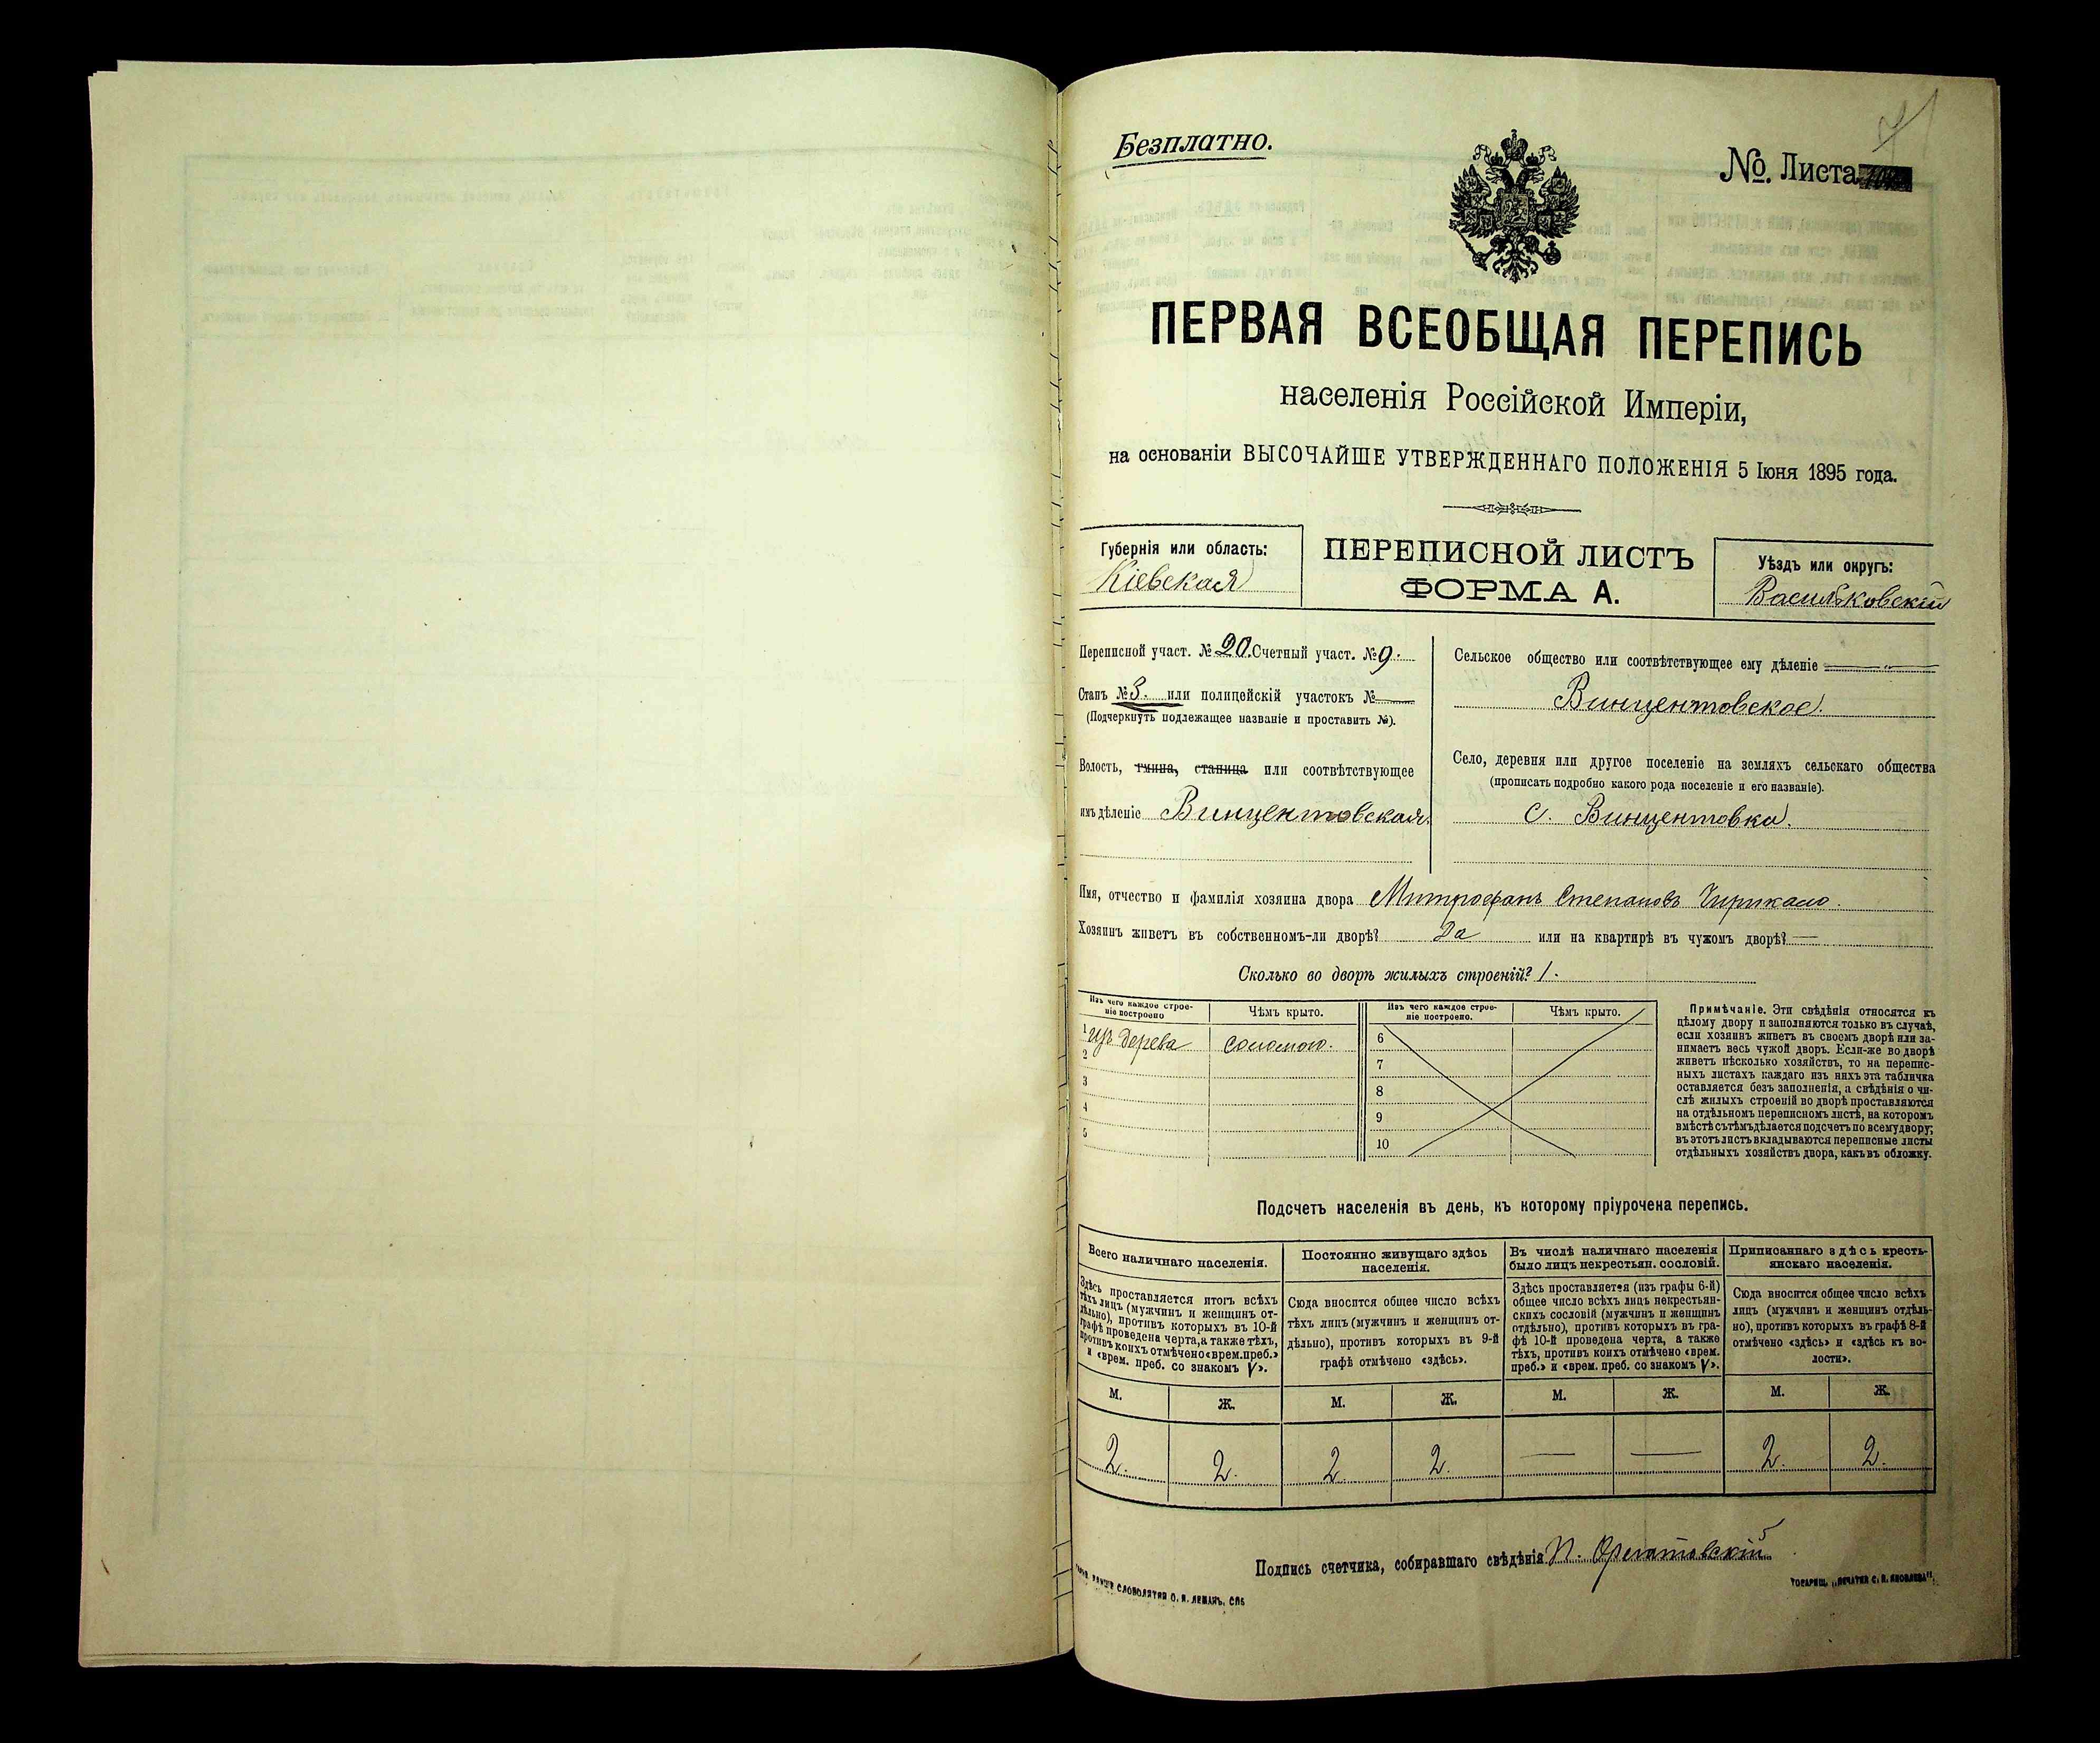 Безплатно.
№. Листа
ПЕРВАЯ ВСЕОБЩАЯ ПЕРЕПИСЬ
населенія Россійской Имперіи,
на основаніи ВЫСОЧАЙШЕ УТВЕРЖДЕННАГО ПОЛОЖЕНІЯ 5 Іюня 1895 года.
Губернія или область:
Кіевская
ПЕРЕПИСНОЙ ЛИСТЪ
ФОРМА А.
Уѣздъ или округъ:
Васильковскій
Переписной участ. № 20. Счетный участ. № 9.
Станъ № 3. или полицейскій участокъ № —
(Подчеркнуть подлежащее названіе и проставить №).
Волость, гмина, станица или соотвѣтствующее
имъ дѣленіе Винцентовская.
Сельское общество или соотвѣтствующее ему дѣленіе
Винцентовское.
Село, деревня или другое поселеніе на земляхъ сельскаго общества
(прописать подробно какого рода поселеніе и его названіе).
с. Винцентовка.
Имя, отчество и фамилія хозяина двора Митрофанъ Степановъ Чирикало.
Хозяинъ живетъ въ собственномъ-ли дворѣ? Да или на квартирѣ въ чужомъ дворѣ? —
Сколько во дворѣ жилыхъ строеній? 1.
Изъ чего каждое строе-
ніе построено
Чѣмъ крыто.
1 изъ дерева соломою.
2
3
4
5
Изъ чего каждое строе-
ніе построено.
Чѣмъ крыто.
6
7
8
9
10
Примѣчаніе. Эти свѣдѣнія относятся къ
цѣлому двору и заполняются только въ случаѣ,
если хозяинъ живетъ въ своемъ дворѣ или за-
нимаетъ весь чужой дворъ. Если-же во дворѣ
живетъ нѣсколько хозяйствъ, то на перепис-
ныхъ листахъ каждаго изъ нихъ эта табличка
оставляется безъ заполненія, а свѣдѣнія о чи-
слѣ жилыхъ строеній во дворѣ проставляются
на отдѣльномъ переписномъ листѣ, на которомъ
вмѣстѣ съ тѣмъ дѣлается подсчетъ по всему двору;
въ этотъ листъ вкладываются переписные листы
отдѣльныхъ хозяйствъ двора, какъ въ обложку.
Подсчетъ населенія въ день, къ которому пріурочена перепись.
Всего наличнаго населенія.
Здѣсь проставляется итогъ всѣхъ
тѣхъ лицъ (мужчинъ и женщинъ от-
дѣльно), противъ которыхъ въ 10-й
графѣ проведена черта, а также тѣхъ,
противъ коихъ отмѣчено «врем. преб.»
и «врем. преб. со знакомъ V».
Постоянно живущаго здѣсь
населенія.
Сюда вносится общее число всѣхъ
тѣхъ лицъ (мужчинъ и женщинъ от-
дѣльно), противъ которыхъ въ 9-й
графѣ отмѣчено «здѣсь».
Въ числѣ наличнаго населенія
было лицъ некрестьян. сословій.
Здѣсь проставляется (изъ графы 6-й)
общее число всѣхъ лицъ некрестьян-
скихъ сословій (мужчинъ и женщинъ
отдѣльно), противъ которыхъ въ гра-
фѣ 10-й проведена черта, а также
тѣхъ, противъ коихъ отмѣчено «врем.
преб.» и «врем. преб. со знакомъ V».
Приписаннаго здѣсь кресть-
янскаго населенія.
Сюда вносится общее число всѣхъ
лицъ (мужчинъ и женщинъ отдѣль-
но), противъ которыхъ въ графѣ 8-й
отмѣчено «здѣсь» и «здѣсь къ во-
лости».
М. Ж. М. Ж. М. Ж. М. Ж.
2. 2. 2. 2. — — 2. 2.
Подпись счетчика, собиравшаго свѣдѣнія
СЛОВОЛИТНИ О. И. ЛЕМАНЪ, СПБ
ТОВАРИЩ. „ПЕЧАТНЯ С. П. ЯКОВЛЕВА".